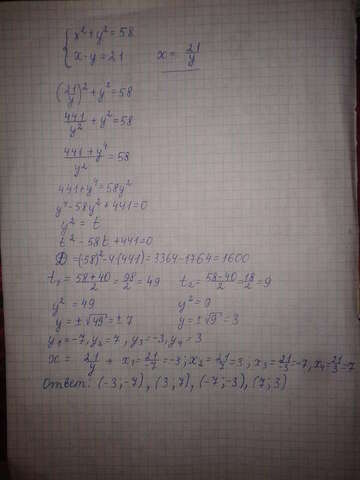 {x²+y²=58
{x·y=21 x=21/y
(21/y)²+y²=58
441/y²+y²=58
(441+y⁴)/y²=58
441+y⁴=58y²
y⁴-58y²+441=0
y²=t
t²-58t+441=0
D=(58)²-4(441)=3364-1764=1600
t₁=(58+40)/2=98/2=49 t₂=(58-40)/2=18/2=9
y²=49 y²=9
y=±√49=±7 y=±√9=3
y₁=-7, y₂=7, y₃=-3, y₄=3
x=21/y + x₁=21/-7=-3; x₂=21/7=3; x₃=21/-3=-7, x₄=21/3=7
Ответ: (-3;-7), (3;7), (-7;-3), (7;3)